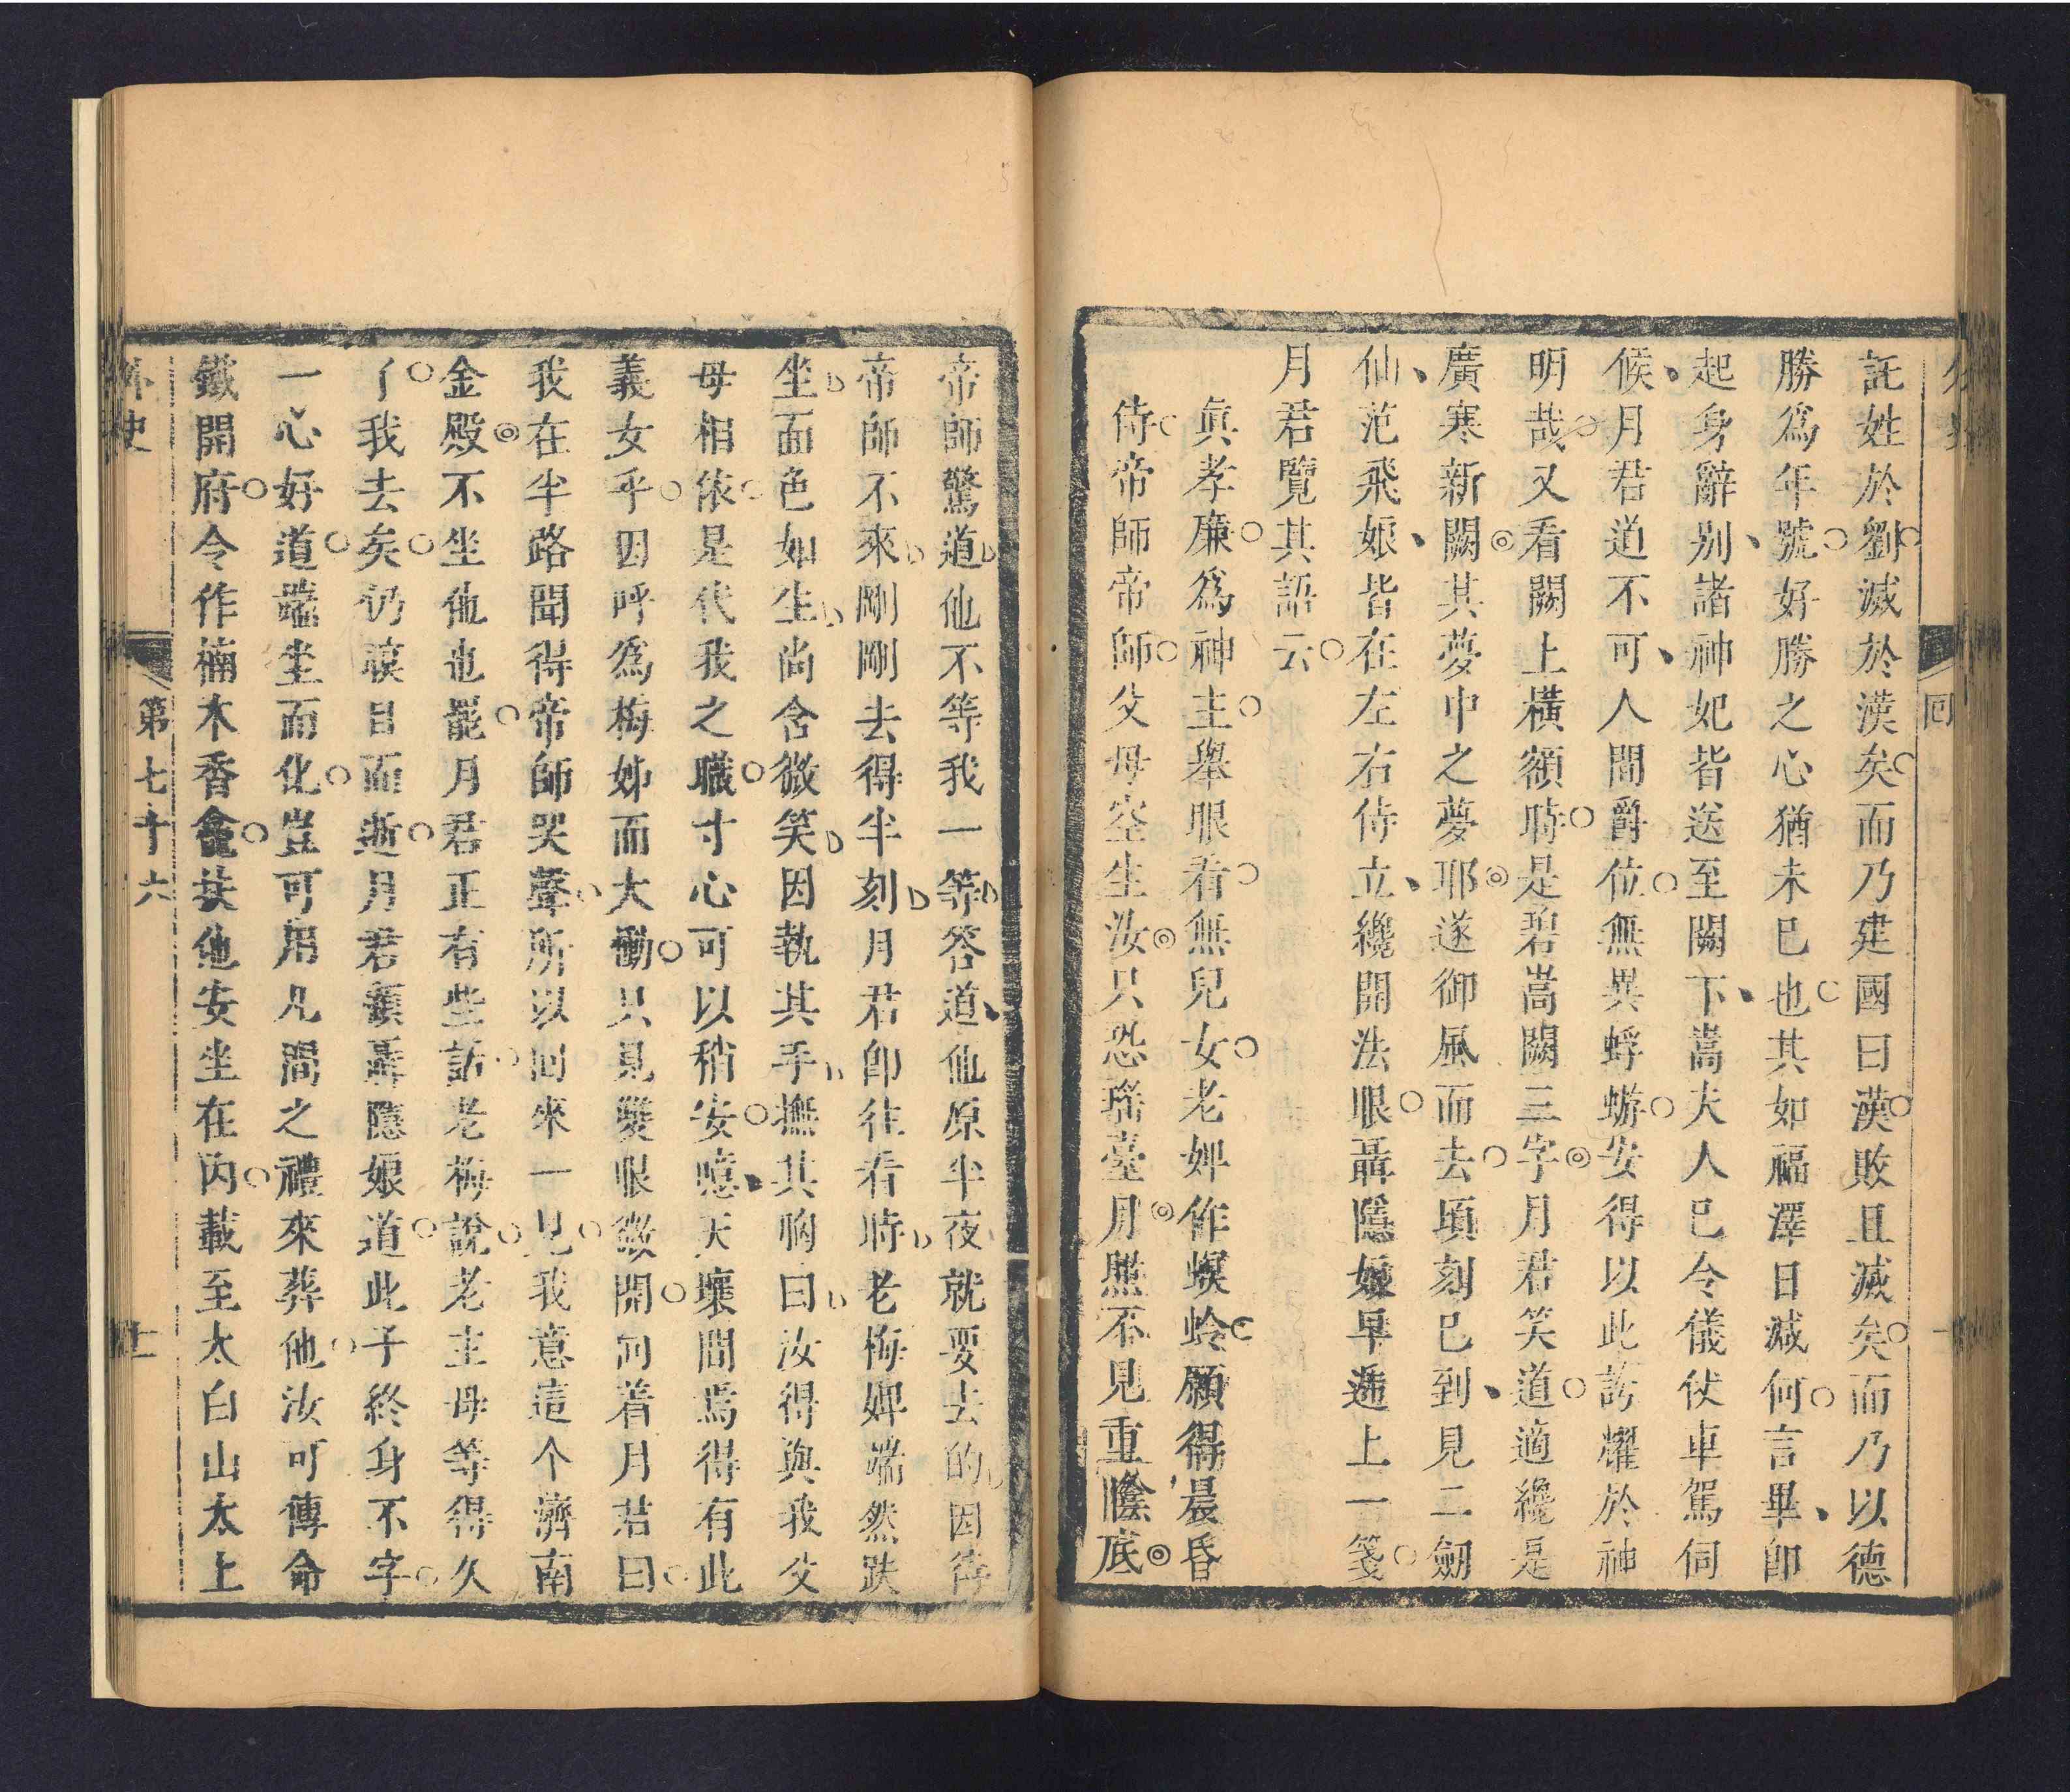 回
託姓於劉滅於漢矣而乃建國曰漢敗且滅矣而乃以德
勝爲年號好勝之心猶未巳也其如福澤日減何言畢卽
起身辭别諸神妃皆送至闕下嵩夫人巳令儀伏車駕伺
候月君道不可人間爵位無異蜉蝣安得以此誇耀於神
明哉又看闕上橫額時是碧嵩闕三字月君笑道適纔是
廣寒新闕其夢中之夢耶遂御風而去頃刻巳到見二劒
仙范飛娘皆在左右侍立纔開法眼聶隱娘早遞上一箋
月君覽其語云
眞孝廉爲神主舉眼看無兒女老婢作螟蛉願得晨昏
侍帝師帝師父母空生汝只恐瑤臺月照不見重陰底
帝師驚道他不等我一等答道他原半夜就要去的因待
帝師不來剛剛去得半刻月君卽往看時老梅婢端然趺
坐面色如生尚含微笑因執其手撫其胸曰汝得與我父
母相依是代我之職寸心可以稍安噫天壤間焉得有此
義女乎因呼爲梅姊而大慟只見雙眼微開向着月君曰
我在半路聞得帝師哭聲所以回來一見我意這个濟南
金殿不坐他也罷月君正有些話老梅說老主母等得久
了我去矣仍瞑目而逝月君顧聶隱娘道此子終身不字
一心好道端坐而化豈可用凡間之禮來葬他汝可傳命
鐵開府令作楠木香龕扶他安坐在內載至太白山太上
外史
第七十六